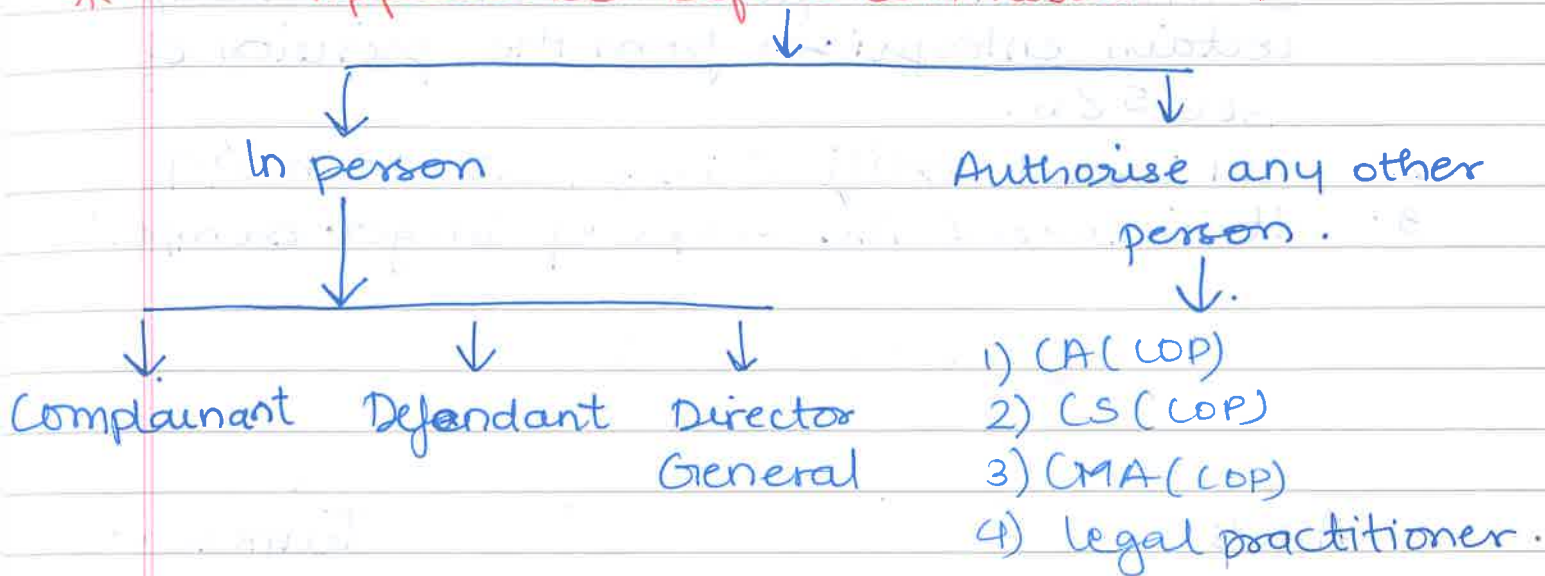 In person
Authorise any other
person.
Complainant Defendant Director
General
1) CA (COP)
2) CS (COP)
3) CMA (COP)
4) legal practitioner.